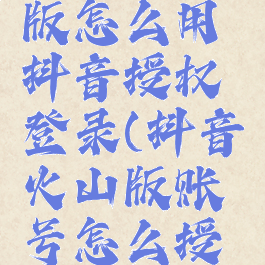 版怎么用
抖音授权
登录(抖音
火山版账
号怎么授